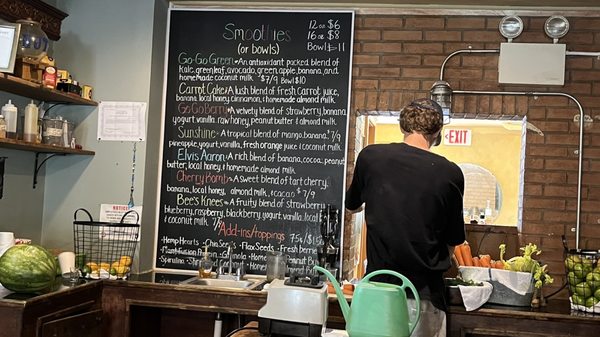 Smoothies
(or bowls)
12 oz $6
16 oz $8
Bowl $11
Go-Go Green - An antioxidant packed blend of
Kale, greenleaf, avocado, green apple, banana, and
homemade coconut milk ~$7/9 Bowl $10
Carrot Cake - A lush blend of fresh Carrot juice,
banana, local honey, cinnamon, homemade almond milk.
Go Go Berry - A velvety blend of strawberry, banana
yogurt, vanilla, raw honey, & homemade coconut milk.
Sunshine - A tropical blend of mango, banana, 7/9
yogurt, vanilla, fresh orange juice & coconut milk
Elvis Aaron - A rich blend of banana, cocoa, peanut
butter, local honey & homemade almond milk.
Cherry Bomb - A sweet blend of tart cherry,
banana, local honey, almond milk, cacao $ 7/9
Bee's Knees - A fruity blend of strawberry
blueberry, raspberry, blackberry, yogurt, vanilla, local
honey 7/9
Add-ins/toppings
75¢/$1.50
-Hemp Hearts -Chia Seeds -Flax Seeds
EXIT